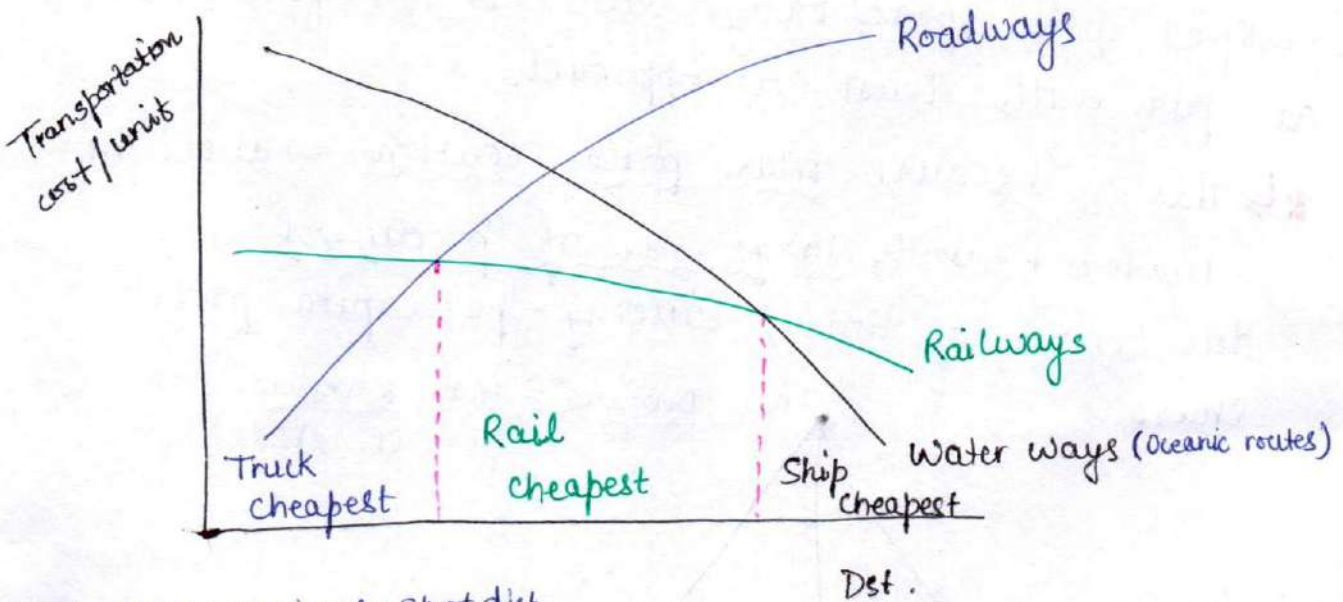 Transportation
cost/unit
Roadways
Railways
Water ways (Oceanic routes)
Truck
cheapest
Rail
cheapest
Ship
cheapest
Dst.